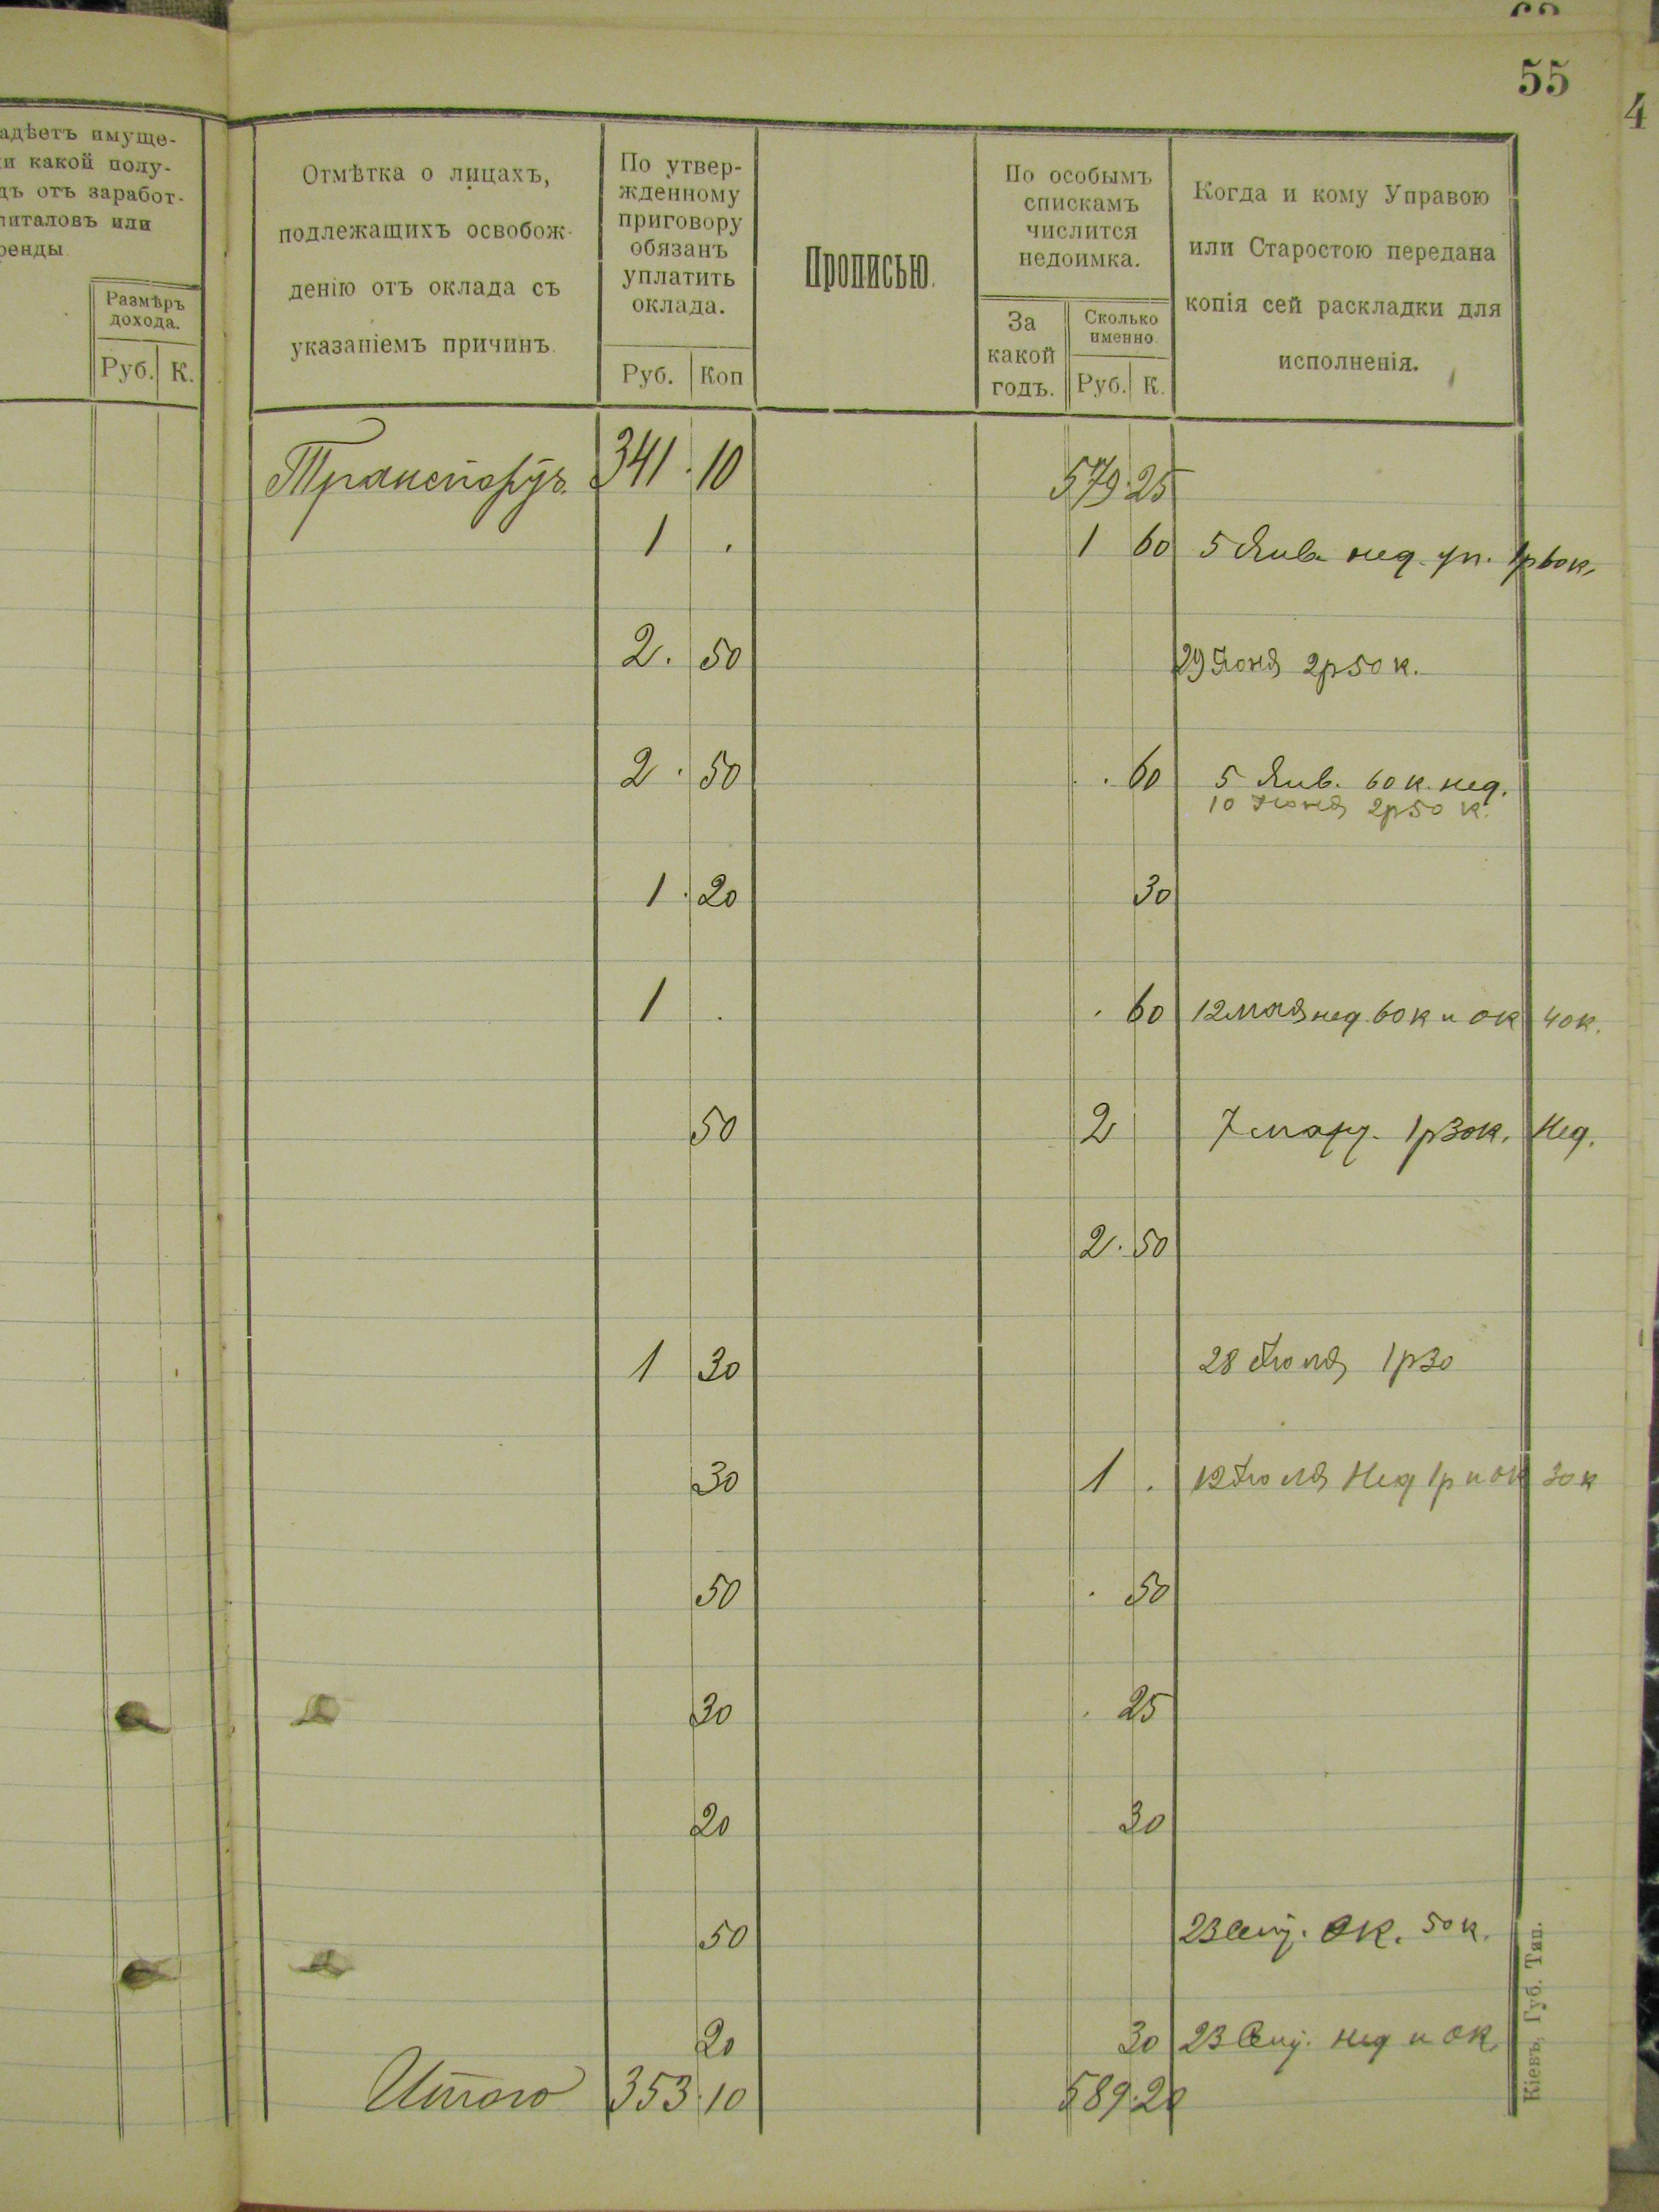 55
4
адѣетъ имуще-
и какой полу-
дъ отъ заработ-
питаловъ или
ренды
Размѣръ
дохода.
Руб. К.
Отмѣтка о лицахъ,
подлежащихъ освобож-
денію отъ оклада съ
указаніемъ причинъ.
По утвер-
жденному
приговору
обязанъ
уплатить
оклада.
Руб. Коп
Прописью.
По особымъ
спискамъ
числится
недоимка.
За
какой
годъ.
Сколько
именно.
Руб. К.
Когда и кому Управою
или Старостою передана
копія сей раскладки для
исполненія.
Транспортъ 341 · 10 579 · 25
1 . 1 60 5 Янв. нед. уп. 1р 60к.
2. 50 29 Іюня 2р 50 к.
2 · 50 . . 60 5 Янв. 60 к. нед.
10 Іюня 2р 50 к.
1 · 20 30
1 . . 60 12 мая нед. 60 к и ок 40к.
50 2 7 март. 1р 30к. Нед.
2 · 50
1 30 28 Іюля 1р 30
30 1 . 12 Іюля Нед 1р и ок 30 к
50 . 50
30 . 25
20 30
50 23 Сент. ок. 50 к.
20 30 23 Сент. нед и ок.
Итого 353 · 10 589 · 20
Кіевъ, Губ. Тип.